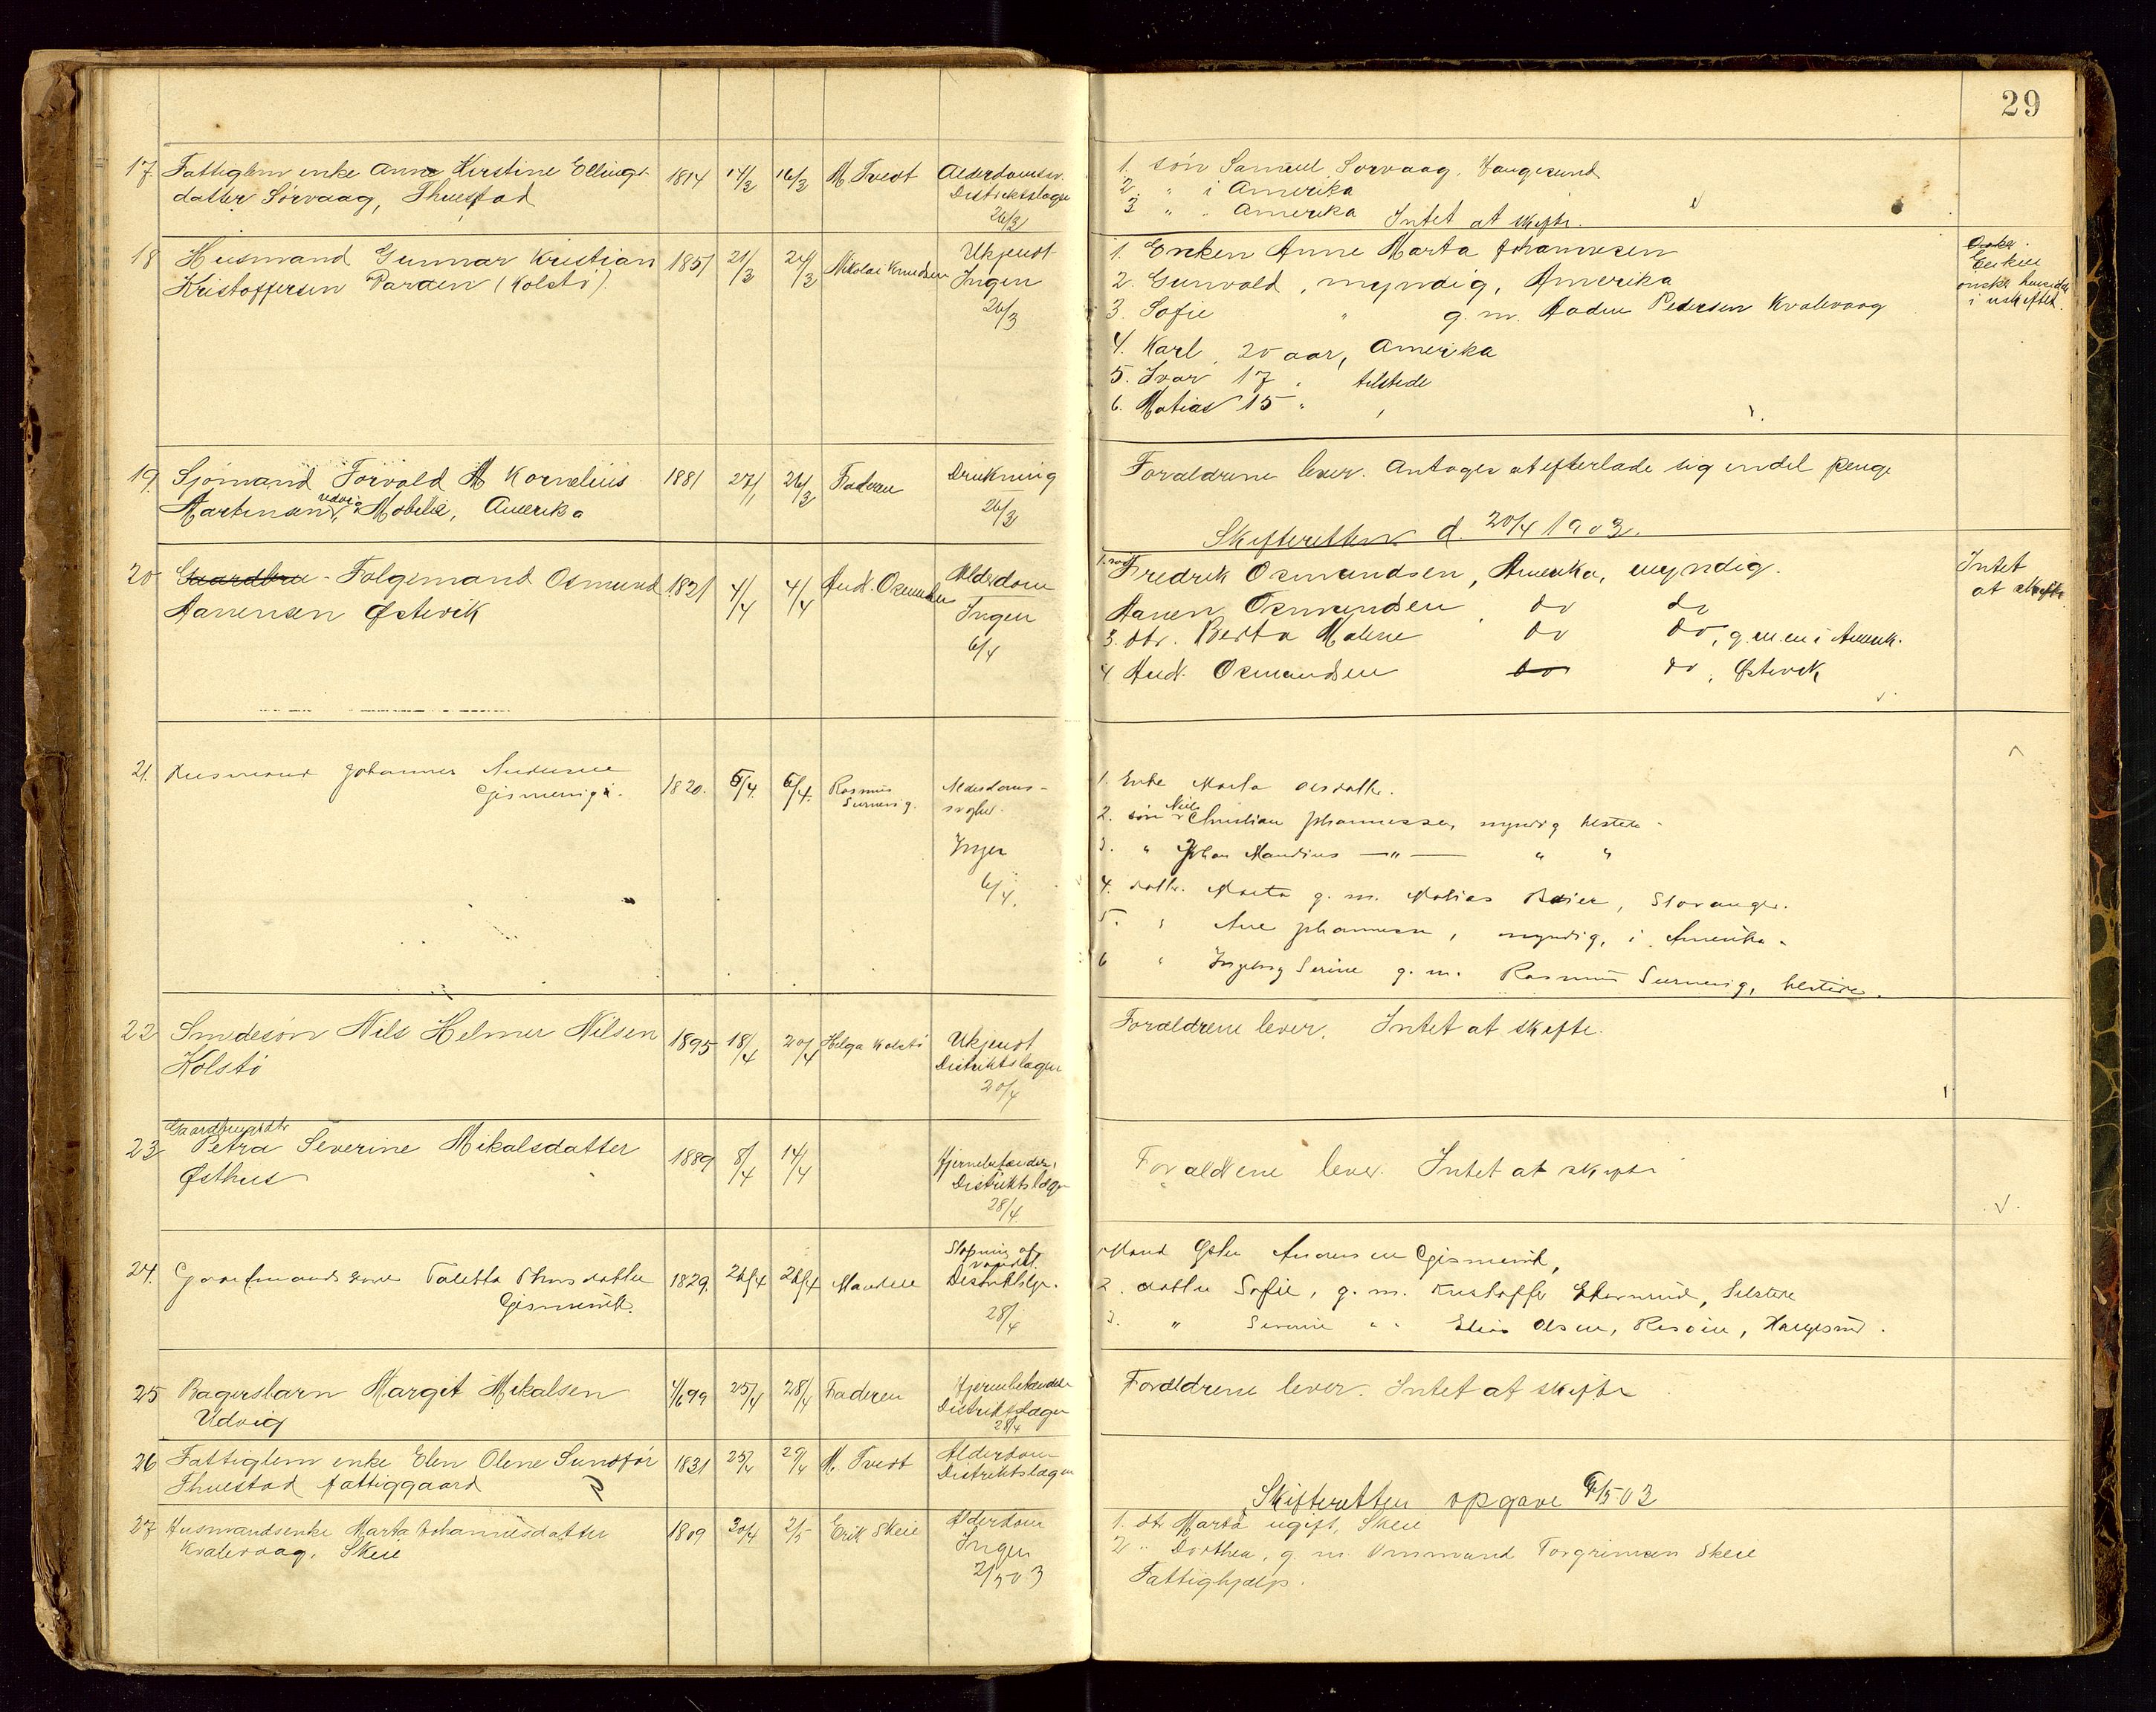 29
17 Fattiglem enke Anne Kirstine Ellings-
datter Sörvaag, Thuestad
1814 14/3 16/3 M. Tvedt
Alderdomssv.
Distriktslægen
26/3
1. sön Samuel Sorvaag. Haugesund
2. " i Amerika
3 " " Amerika Intet at skifte.
18 Husmand Gunnar Kristian
Kristoffersen (Kolstö).
1851 21/3 24/3 Nikolai Knudsen
Ukjendt
Ingen
26/3
1. Enken Anne Marta Johannesen
2. Gunvald, myndig, Amerika
3. Sofie " g. m. Aadne Pedersen Kvalevaag
4. Karl, 20 aar, Amerika
5. Ivar 17 " tilstede
6. Matias 15 "
Enken
önsker hensidde
i uskiftet.
19. Sjömand Torvald M Kornelius
Martinsen, Udvig Mobile, Amerika
1881 27/1 26/3 Faderen
Drukning
26/3
Forældrene lever. Antages at efterlade sig endel penge
Skifteretten d. 20/4 1903.
20 Gaardbru - Folgemand Osmund
Aanensen Østevik
1821 4/4 4/4 And. Osmundsen
Alderdom
Ingen
6/4
1. sön Fredrik Osmundsen, Amerika, myndig.
Aanen Osmundsen, do do
3. dtr. Berta Malene do do, g. m. en i Amerik.
4 And. Osmundsen do do, Østevik
Intet
at skifte
21. Husmand Johannes Andersen
Gismervig.
1820. 5/4. 6/4. Rasmus
Surnevig.
Alderdoms-
svaghed.
Ingen
6/4.
1. Enke Marta Olsdatter.
2. sön Nils Christian Johannessen, myndig tilstede
3. " Johan Mandius —"— " "
4. datter. Marta g. m. Matias Beier, Stavanger.
5. " Ane Johannessen, myndig, i Amerika.
6 " Ingeborg Serine g. m. Rasmus Surnevig, tilstede.
22 Smedesön Nils Helmer Nilsen
Kolstö
1895 18/4 20/4 Helga Kolstö
Ukjendt
Distriktslægen
20/4
Forældrene lever. Intet at skifte.
Gaardbrugerdtr
23 Petra Severine Mikalsdatter
Østhus
1889 8/4 14/4
Hjernebetændelse,
Distriktslæge
28/4
Forældrene lever. Intet at skifte
24. Gaardmands kone Taletta Thorsdatter
Gismervik.
1829. 26/4 28/4 Manden
Distriktslge.
28/4
Mand Andersen Gismervik,
2. datter Sofie, g. m. Kristoffer, tilstede
3. " Severine " " Elias Olsen, Risöen, Haugesund.
25 Bagersbarn Margit Mikalsen
Udvig
4/6 99 25/4 28/4 Faderen
Hjernebetændelse
Distriktslægen
28/4
Forældrene lever. Intet at skifte
26 Fattiglem enke Elen Olene Sundför
Thuestad fattiggaard
1831 25/4 29/4 M. Tvedt
Alderdom
Distriktslægen
Skifteretten opgave 9/5 03
27 Husmandsenke Marta Johannesdatter
Kvalevaag, Skeie
1809 30/4 2/5 Erik Skeie
Alderdom
Ingen
2/5 03
1. dtr Marta ugift, Skeie
2 " Dorthea, g. m. Ommund Torgrimsen Skeie
Fattighjælp.